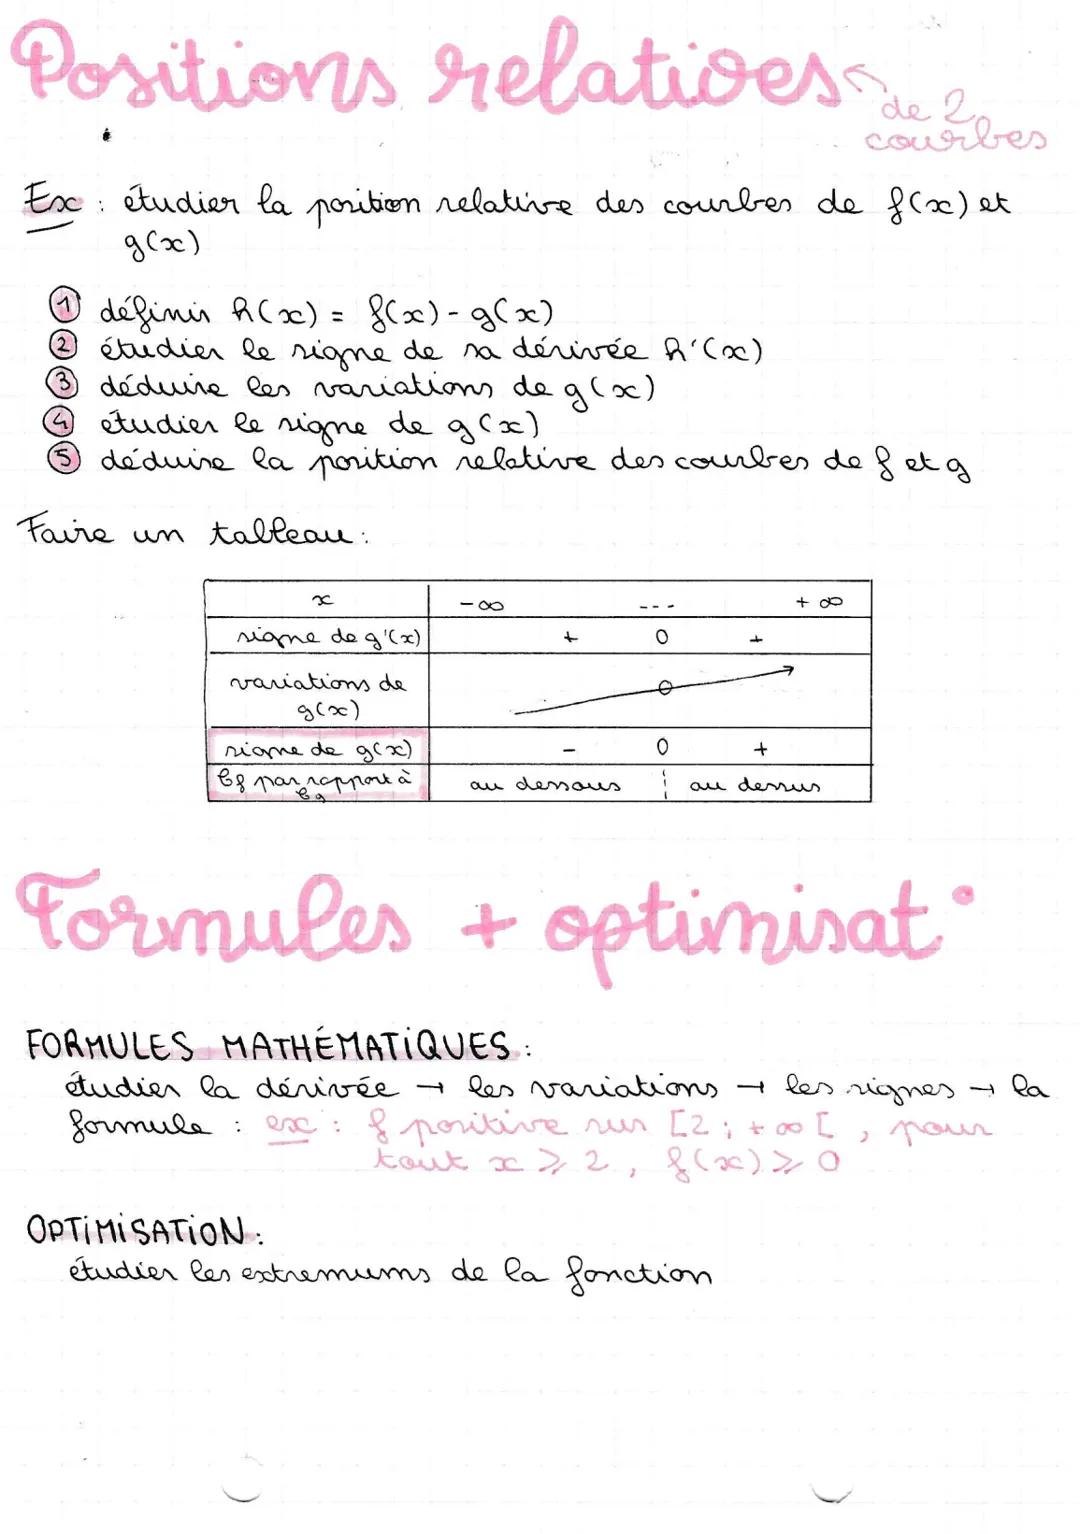 Positions relatives
de 2
courbes
Ex : étudier la position relative des courbes de f(x) et
g(x)
1 définir h(x) = f(x) - g(x)
2 étudier le signe de sa dérivée h'(x)
3 déduire les variations de g(x)
4 étudier le signe de g(x)
5 déduire la position relative des courbes de f et g
Faire un tableau :
x -∞ --- +∞
signe de g'(x) + 0 +
variations de
g(x) 0
signe de g(x) - 0 +
Cf par rapport à
Cg au dessous au dessus
Formules + optimisat°
FORMULES MATHÉMATIQUES :
étudier la dérivée → les variations → les signes → la
formule : ex : f positive sur [2 ; +∞[ , pour
tout x ⩾ 2 , f(x) ⩾ 0
OPTIMISATION :
étudier les extremums de la fonction